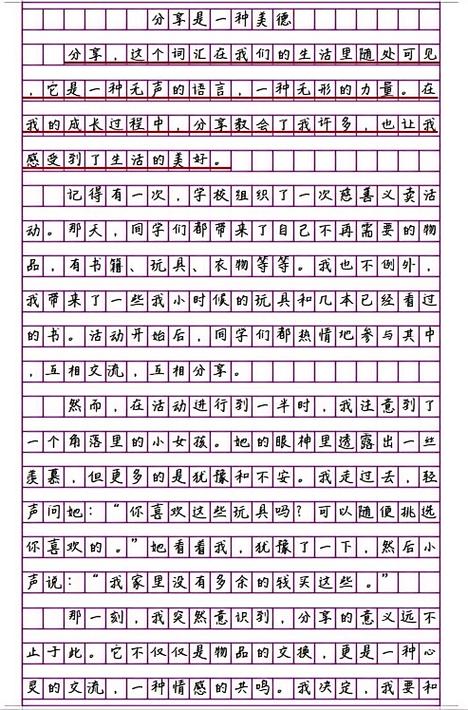 分享是一种美德
分享，这个词汇在我们的生活里随处可见
，它是一种无声的语言，一种无形的力量。在
我的成长过程中，分享教会了我许多，也让我
感受到了生活的美好。
记得有一次，学校组织了一次慈善义卖活
动。那天，同学们都带来了自己不再需要的物
品，有书籍、玩具、衣物等等。我也不例外，
我带来了一些我小时候的玩具和几本已经看过
的书。活动开始后，同学们都热情地参与其中
，互相交流，互相分享。
然而，在活动进行到一半时，我注意到了
一个角落里的小女孩。她的眼神里透露出一丝
羡慕，但更多的是犹豫和不安。我走过去，轻
声问她：“你喜欢这些玩具吗？可以随便挑选
你喜欢的。”她看着我，犹豫了一下，然后小
声说：“我家里没有多余的钱买这些。”
那一刻，我突然意识到，分享的意义远不
止于此。它不仅仅是物品的交换，更是一种心
灵的交流，一种情感的共鸣。我决定，我要和